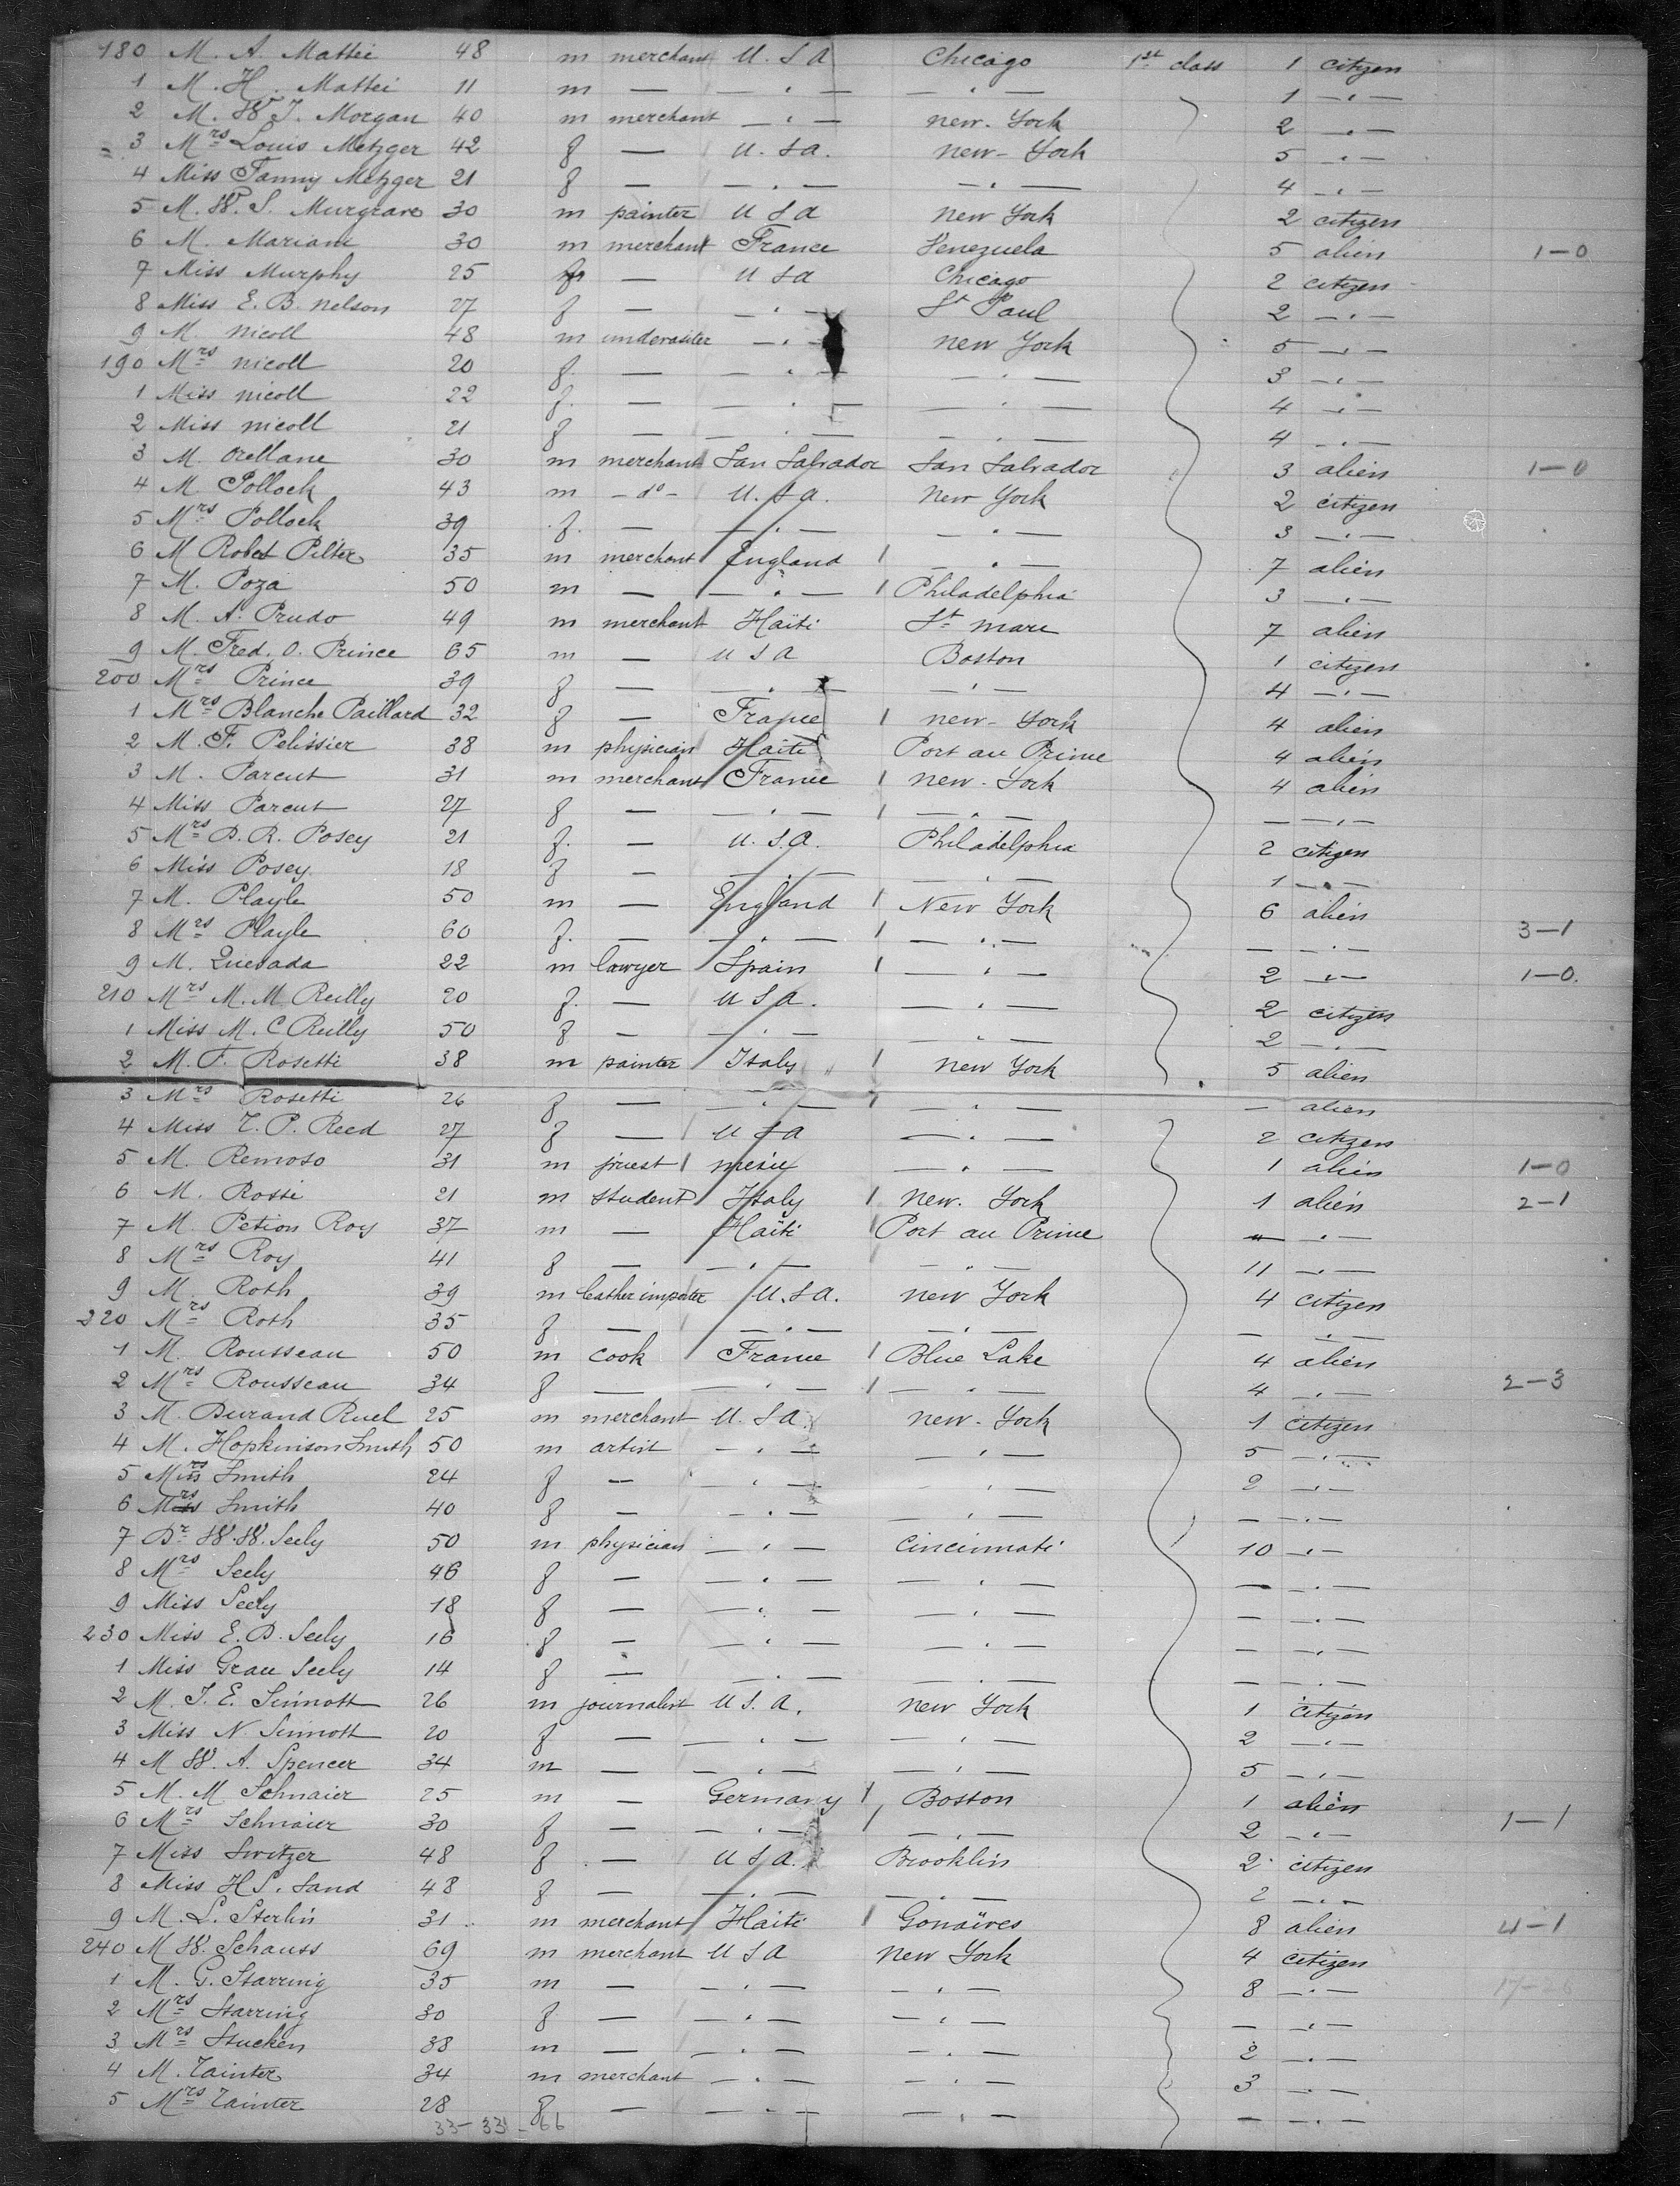 180 M. A. Mattei 48 m merchant U. S A Chicago 1st class 1 citizen
1 M. H. Mattei 11 m — — " — — " — 1 — " —
2 M. W J. Morgan 40 m merchant — " — new. York 2 — " —
3 Mrs Louis Metzger 42 f — U. S a. new- York 5 — " —
4 Miss Fanny Metzger 21 f — — " — — " — 4 — " —
5 M. W. S. Murgrave 30 m painter U S a new York 2 citizen
6 M. Mariani 30 m merchant France Venezuela 5 alien 1-0
7 Miss Murphy 25 f — U S a Chicago 2 citizen
8 Miss E. B. nelson 27 f — — " — St Paul 2 — " —
9 M. nicoll 48 m — " — new York 5 — " —
190 Mrs nicoll 20 f. — — " — — " — 3 — " —
1 Miss nicoll 22 f. — — " — — " — 4 — " —
2 Miss nicoll 21 f — — " — — " — 4 — " —
3 M. Orellane 30 m merchant San Salvador San Salvador 3 alien 1-0
4 M. Pollock 43 m - do - U. S a. New York 2 citizen
5 Mrs Pollock 39 f. — — " — — " — 3 — " —
6 M Robet Pilter 35 m merchant England 1 — " — 7 alien
7 M. Poza 50 m — — " — 1 Philadelphia 3 — " —
8 M. A. Prudo 49 m merchant Haïti St marc 7 alien
9 M. Fred. O. Prince 65 m — U S A Boston 1 citizen
200 Mrs Prince 39 f — — " — — " — 4 — " —
1 Mrs Blanche Paillard 32 f — France 1 new- York 4 alien
2 M. F. Pelissier 38 m physician Haïti Port au Prince 4 alien
3 M. Parent 31 m merchant France 1 new- York 4 alien
4 Miss Parent 27 f — — " — 1 — " — — — " —
5 Mrs B. R. Posey 21 f. — U. S. a. Philadelphia 2 citizen
6 Miss Posey. 18 f — — " — — " — 1 — " —
7 M. Playle 50 m — England 1 New York 6 alien
8 Mrs Playle 60 f. — — " — 1 — " — — — " — 3-1
9 M. Quesada 22 m lawyer Spain 1 — " — 2 — " — 1-0.
210 Mrs M. M Reilly 20 f. — U S a. — " — 2 citizen
1 Miss M. C Reilly 50 f — — " — — " — 2 — " —
2 M. F. Rosetti 38 m painter Italy 1 new York 5 alien
3 Mrs Rosetti 26 f — — " — 1 — " — — alien
4 Miss T. P. Reed 27 f — U S a — " — 2 citizen
5 M. Remoso 31 m priest 1 — " — 1 alien 1-0
6 M. Rossi 21 m student Italy 1 new. York 1 alien 2-1
7 M. Petion Roy 37 m — Haïti Port au Prince — " —
8 Mrs Roy 41 f — — " — — " — 11 — " —
9 M. Roth 39 m leather importer U. S a. new York 4 citizen
220 Mrs Roth 35 f — — " — — " — — — " —
1 M. Rousseau 50 m cook France 1 Blue Lake 4 alien
2 Mrs Rousseau 34 f — — " — 1 — " — 4 — " — 2-3
3 M. Durand Ruel 25 m merchant U. S a. new- York 1 citizen
4 M. Hopkinson Smith 50 m artist — " — — " — 5 — " —
5 Smith 24 f — — " — — " — 2 — " —
6 Mrs Smith 40 f — — " — — " — — — " —
7 Dr W. W. Seely 50 m physician — " — Cincinnati 10 — " —
8 Mrs Seely 46 f — — " — — " — — — " —
9 Miss Seely 18 f — — " — — " — — — " —
230 Miss E. D. Seely 16 f — — " — — " — — — " —
1 Miss Grace Seely 14 f — — " — — " — — — " —
2 M. J. E. Sinnott 26 m journalist U S. a. new York 1 citizen
3 Miss N. Sinnott 20 f — — " — — " — 2 — " —
4 M W. A. Spencer 34 m — — " — — " — 5 — " —
5 M. M Schnaier 25 m — Germany 1 Boston 1 alien
6 Mrs Schnaier 30 f — — " — 1 — " — 2 — " — 1-1
7 Miss Switzer 48 f — U S a. Brooklin 2 citizen
8 Miss H S. Sand 48 f — — " — — " — 2 — " —
9 M. L. Sterlin 31 m merchant Haïti 1 Gonaïves 8 alien 4-1
240 M W. Schauss 69 m merchant U S a new York 4 citizen
1 M. G. Starring 35 m — — " — — " — 8 — " — 17-26
2 Mrs Starring 30 f — — " — — " — — — " —
3 Mrs Stucken 38 m — — " — — " — 2 — " —
4 M. Tainter 34 m merchant — " — — " — 3 — " —
5 Mrs Tainter 28 f — — " — — " — — — " —
33-33-66